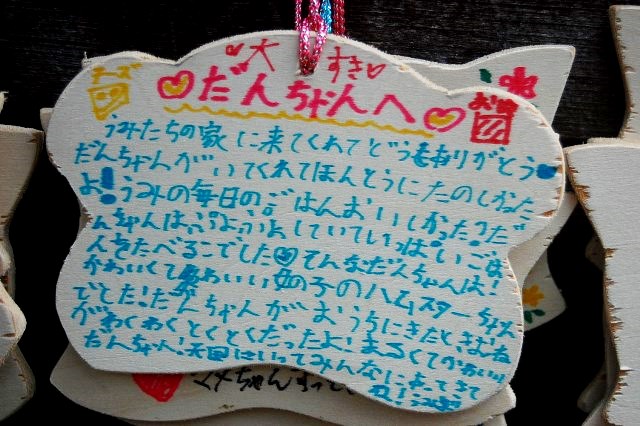 大
すき
チーズ
だんちゃんへ
お肉
うみたちの家に来てくれてどうもありがとう
だんちゃんがいてくれてほんとうにたのしかった
よ!うみの毎日のごはんおいしかった?だ
んちゃんはぷよぷよしていていっぱいごは
んをたべるこでした てんなだんちゃんは!
かわいくてかわいい女の子のハムスターちゃん
でした!だんちゃんがおうちにきたときむね
がわくわくとくとくだったよ!まるくてかわいい
だんちゃん!天国はいってみんなに
ちゃん